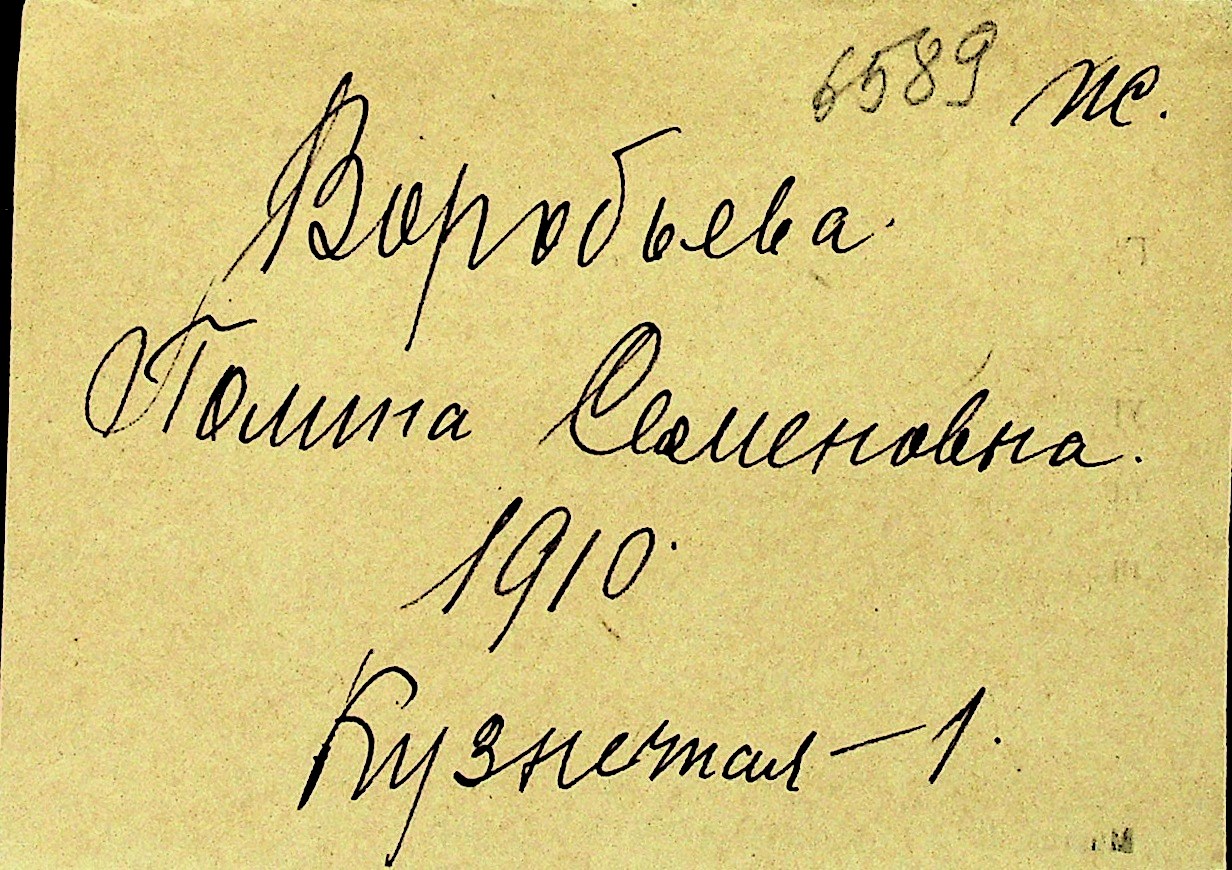 6589 ж.
Воробьева.
Полина Семеновна.
1910.
Кузнечная - 1.